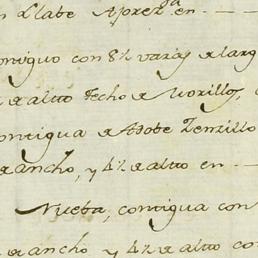 Llabe Aprez.da en
ontiguo con 8½ varas de larg
de altto techo de Morillo,
ontigua de Adobe Zenzillo
de ancho, y 4½ de altto en
Nueba, contigua con
de ancho y 4½ de altto co